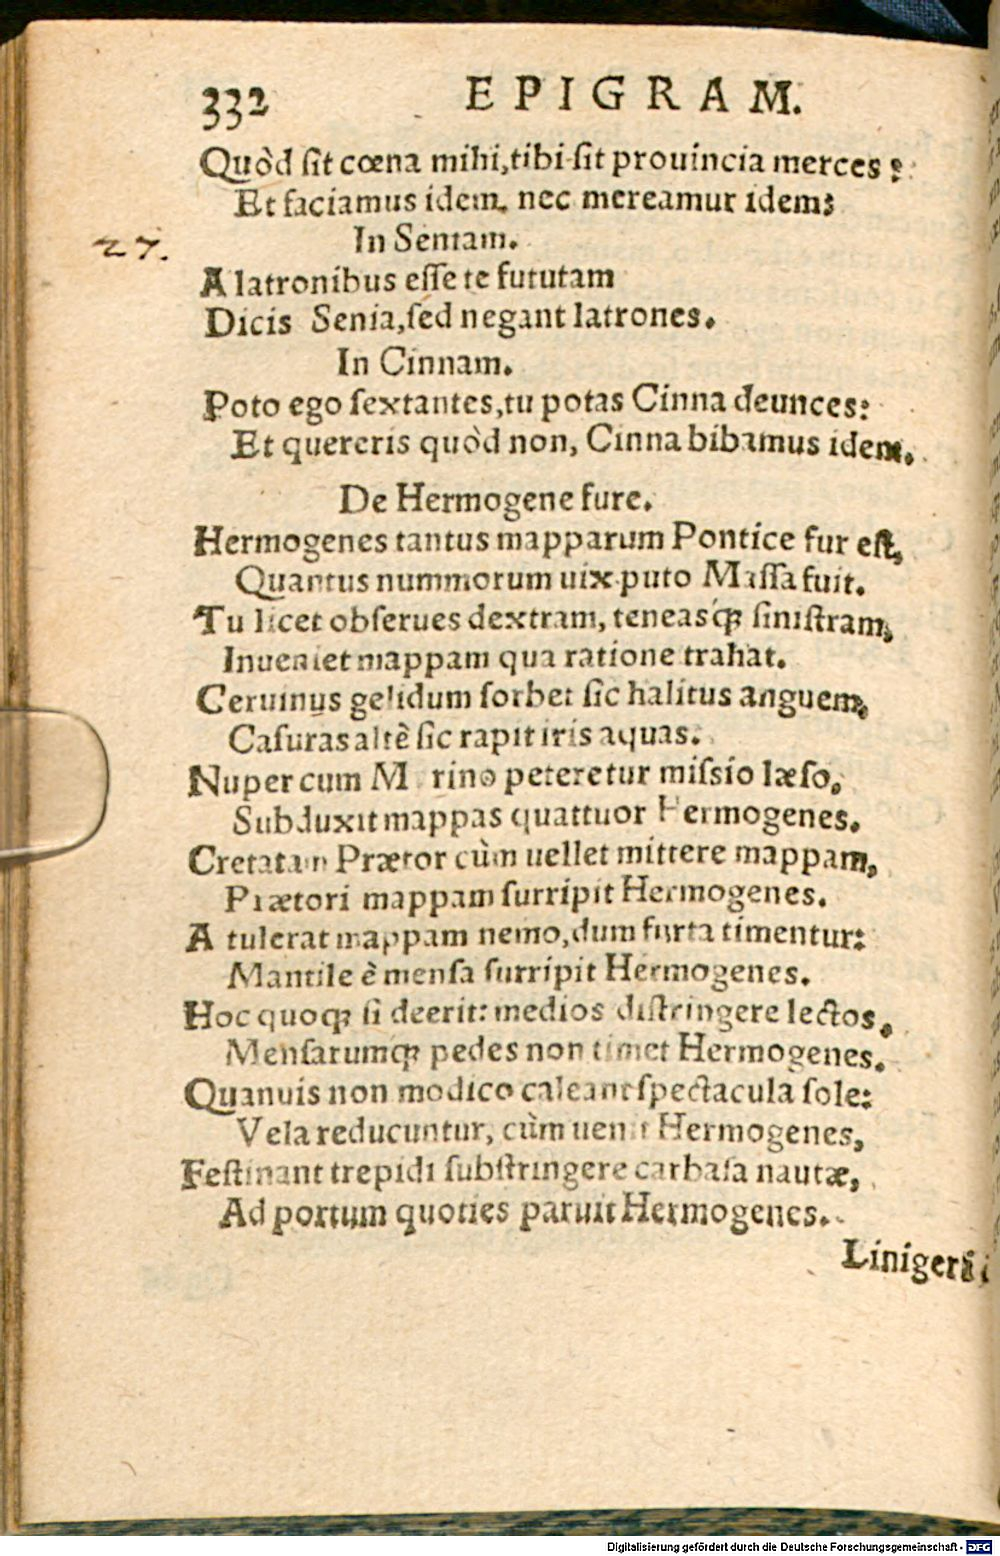 332 EPIGRAM.
Quòd ſit cœna mihi, tibi ſit prouincia merces?
Et faciamus idem, nec mereamur idem?
27.
In Seniam.
A latronibus eſſe te fututam
Dicis Senia, ſed negant latrones.
In Cinnam.
Poto ego ſextantes, tu potas Cinna deunces:
Et quereris quòd non, Cinna bibamus idem.
De Hermogene fure.
Hermogenes tantus mapparum Pontice fur eſt,
Quantus nummorum uix puto Maſſa fuit.
Tu licet obſerues dextram, teneasq; ſiniſtram,
Inueniet mappam qua ratione trahat.
Ceruinus gelidum ſorbet ſic halitus anguem,
Caſuras altè ſic rapit iris aquas.
Nuper cum M rino peteretur miſsio læſo,
Subduxit mappas quattuor Hermogenes.
Cretatam Prætor cùm uellet mittere mappam,
Prætori mappam ſurripit Hermogenes.
A tulerat mappam nemo, dum furta timentur:
Mantile è menſa ſurripit Hermogenes.
Hoc quoq; ſi deerit: medios diſtringere lectos,
Menſarumq; pedes non timet Hermogenes.
Quanuis non modico caleant ſpectacula ſole:
Vela reducuntur, cùm uenit Hermogenes,
Feſtinant trepidi ſubſtringere carbaſa nautæ,
Ad portum quoties paruit Hermogenes.
Linigeri
Digitalisierung gefördert durch die Deutsche Forschungsgemeinschaft - DFG